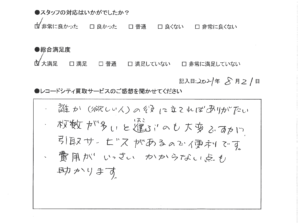 ●スタッフの対応はいかがでしたか?
非常に良かった □良かった □普通 □良くない □非常に良くない
●総合満足度
大満足 □満足 □普通 □満足していない □非常に満足していない
記入日 2021年 8月21日
●レコードシティ買取サービスのご感想を聞かせてください
・誰か(欲しい人)の役に立てればありがたい
・枚数が多いと運ぶのも大変ですが、
引取サービスがあるので便利です。
・費用がいっさいかからない点も
助かります。